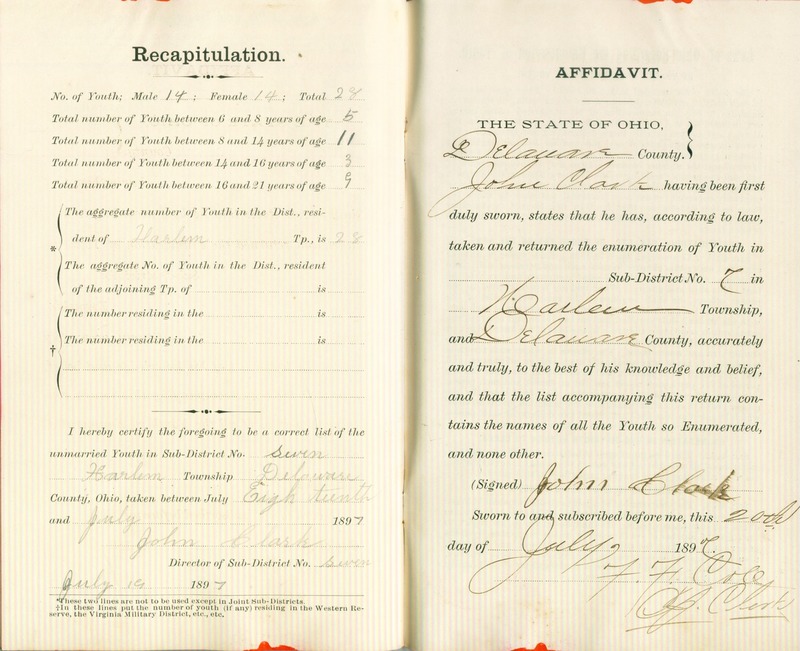 Recapitulation.
No. of Youth; Male 14; Female 14; Total 28
Total number of Youth between 6 and 8 years of age 5
Total number of Youth between 8 and 14 years of age 11
Total number of Youth between 14 and 16 years of age 3
Total number of Youth between 16 and 21 years of age 9
* The aggregate number of Youth in the Dist., resi-
dent of Harlem Tp., is 28
The aggregate No. of Youth in the Dist., resident
of the adjoining Tp. of is
† The number residing in the is
The number residing in the is
I hereby certify the foregoing to be a correct list of the
unmarried Youth in Sub-District No. Seven
Harlem Township Delaware
County, Ohio, taken between July Eigh teenth
and July 1897
John Clark
Director of Sub-District No. Seven
July 19 1897
*These two lines are not to be used except in Joint Sub-Districts.
†In these lines put the number of youth (if any) residing in the Western Re-
serve, the Virginia Military District, etc., etc.
AFFIDAVIT.
THE STATE OF OHIO,
Delaware County.
John Clark having been first
duly sworn, states that he has, according to law,
taken and returned the enumeration of Youth in
Sub-District No. 7 in
Harlem Township,
and Delaware County, accurately
and truly, to the best of his knowledge and belief,
and that the list accompanying this return con-
tains the names of all the Youth so Enumerated,
and none other.
(Signed) John Clark
Sworn to and subscribed before me, this 20th
day of July 1897.
F. F. Cole
Clerk